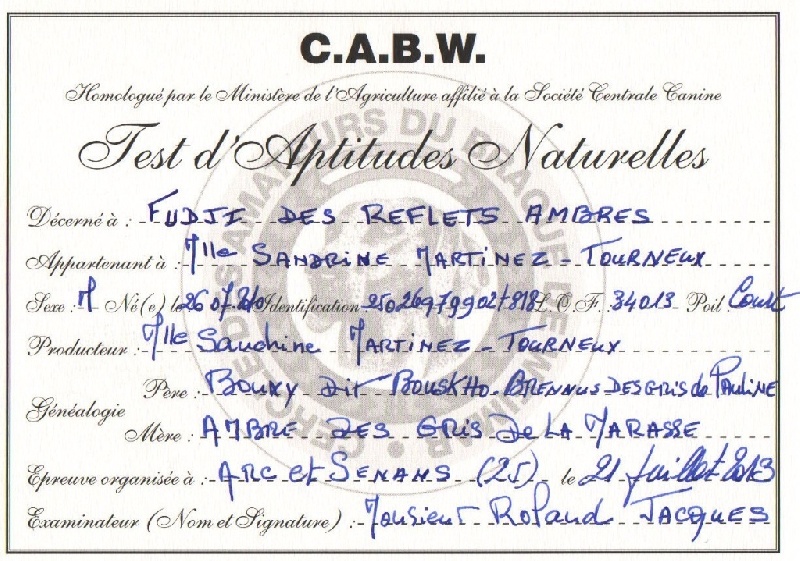 C.A.B.W.
Homologué par le Ministère de l'Agriculture affilié à la Société Centrale Canine
Test d'Aptitudes Naturelles
Décerné à : FUDJI DES REFLETS AMBRES
Appartenant à : Mlle SANDRINE MARTINEZ - TOURNEUX
Sexe M Né(e) le 26 07 Identification L.O.F. 34013 Poil Court
Producteur : Mlle Sandrine MARTINEZ - TOURNEUX
Père : BOUXY DIT BOUSKHO-BRENNUS DES GRIS de PAULINE
Généalogie
Mère : AMBRE DES GRIS DE LA MARASSE
Epreuve organisée à : ARC et SENANS (25) le 21 juillet 2013
Examinateur (Nom et Signature) : Monsieur Roland JACQUES
CERCLE DES AMATEURS DU BRAQUE DE WEIMAR